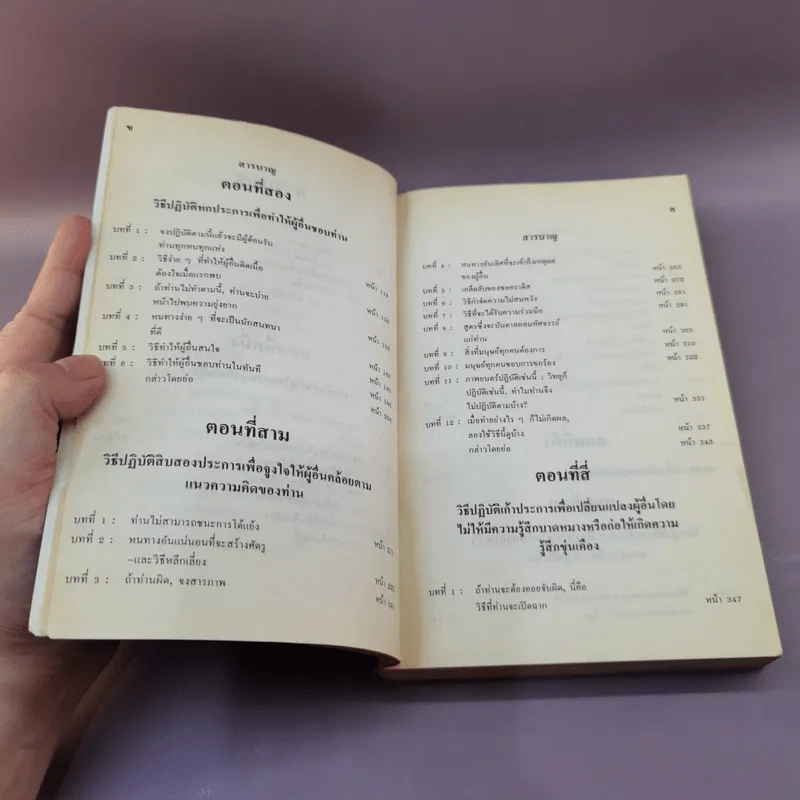 ข
สารบาญ
ตอนที่สอง
วิธีปฏิบัติหกประการเพื่อทำให้ผู้อื่นชอบท่าน
บทที่ 1 : จงปฏิบัติตามนี้แล้วจะมีผู้ต้อนรับ
ท่านทุกหนทุกแห่ง
บทที่ 2 : วิธีง่าย ๆ ที่ทำให้ผู้อื่นติดเนื้อ
ต้องใจเมื่อแรกพบ หน้า 119
บทที่ 3 : ถ้าท่านไม่ทำตามนี้, ท่านจะบ่าย
หน้าไปพบความยุ่งยาก
บทที่ 4 : หนทางง่าย ๆ ที่จะเป็นนักสนทนา
ที่ดี
บทที่ 5 : วิธีทำให้ผู้อื่นสนใจ
บทที่ 6 : วิธีทำให้ผู้อื่นชอบท่านในทันที
กล่าวโดยย่อ
ตอนที่สาม
วิธีปฏิบัติสิบสองประการเพื่อจูงใจให้ผู้อื่นคล้อยตาม
แนวความคิดของท่าน
บทที่ 1 : ท่านไม่สามารถชนะการโต้แย้ง
บทที่ 2 : หนทางอันแน่นอนที่จะสร้างศัตรู หน้า 211
-และวิธีหลีกเลี่ยง
บทที่ 3 : ถ้าท่านผิด, จงสารภาพ
สารบาญ
บทที่ 4 : หนทางอันเลิศที่จะเข้าถึงเหตุผล
ของผู้อื่น
บทที่ 5 : เคล็ดลับของซอคราตีส
บทที่ 6 : วิธีกำจัดความไม่สมหวัง
บทที่ 7 : วิธีที่จะได้รับความร่วมมือ หน้า 291
บทที่ 8 : สูตรซึ่งจะบันดาลผลมหัศจรรย์
แก่ท่าน
บทที่ 9 : สิ่งที่มนุษย์ทุกคนต้องการ
บทที่ 10 : มนุษย์ทุกคนชอบการขอร้อง หน้า 322
บทที่ 11 : ภาพยนตร์ปฏิบัติเช่นนี้ : วิทยุก็
ปฏิบัติเช่นนี้. ทำไมท่านจึง
ไม่ปฏิบัติตามบ้าง? หน้า 331
บทที่ 12 : เมื่อทำอย่างไร ๆ ก็ไม่เกิดผล,
ลองใช้วิธีนี้ดูบ้าง หน้า 337
กล่าวโดยย่อ หน้า 343
ตอนที่สี่
วิธีปฏิบัติเก้าประการเพื่อเปลี่ยนแปลงผู้อื่นโดย
ไม่ให้มีความรู้สึกบาดหมางหรือก่อให้เกิดความ
รู้สึกขุ่นเคือง
บทที่ 1 : ถ้าท่านจะต้องคอยจับผิด, นี่คือ
วิธีที่ท่านจะเปิดฉาก หน้า 347